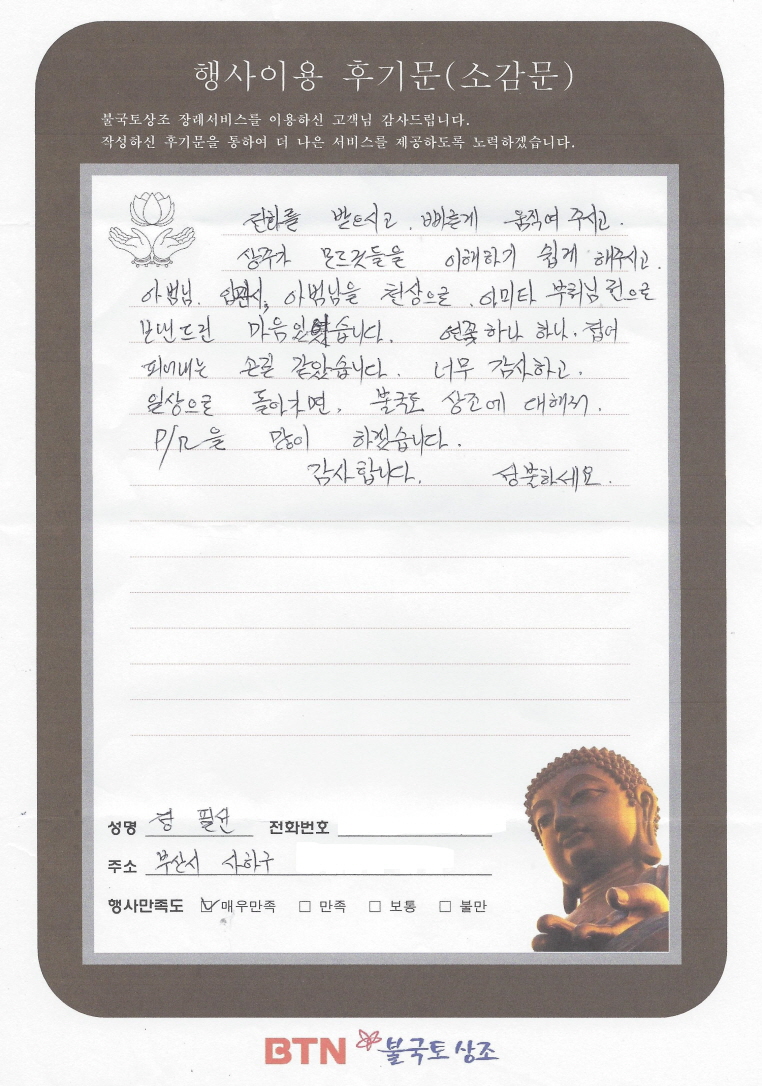 행사이용 후기문(소감문)
불국토상조 장례서비스를 이용하신 고객님 감사드립니다.
작성하신 후기문을 통하여 더 나은 서비스를 제공하도록 노력하겠습니다.
전화를 받으시고, 빠르게 움직여 주시고.
상주가 모든것들을 이해하기 쉽게 해주시고.
아범님. 입관시, 아범님을 천상으로, 아미타 부처님 전으로
보낸드린 마음 있었습니다. 연꽃 하나 하나. 접어
피어내는 손길 같았습니다. 너무 감사하고.
일상으로 돌아가면, 불국토 상조에 대해서.
P/R을 많이 하겠습니다.
감사합니다. 성불하세요.
성명 정 필선 전화번호
주소 부산시 사하구
행사만족도 ☑매우만족 □ 만족 □ 보통 □ 불만
BTN 불국토 상조